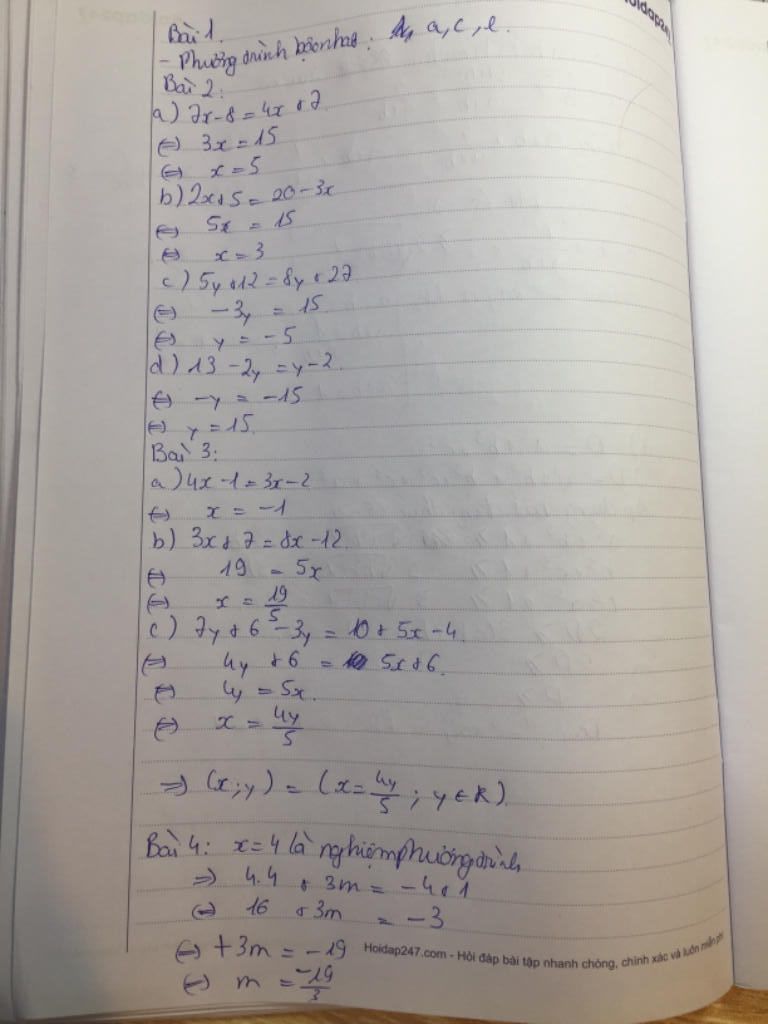 Bài 1.
- Phương trình bậc nhất: a, c, e.
Bài 2:
a) 7x - 8 = 4x + 7
⇔ 3x = 15
⇔ x = 5
b) 2x + 5 = 20 - 3x
⇔ 5x = 15
⇔ x = 3
c) 5y + 12 = 8y + 27
⇔ -3y = 15
⇔ y = -5
d) 13 - 2y = y - 2
⇔ -y = -15
⇔ y = 15.
Bài 3:
a) 4x - 1 = 3x - 2
⇔ x = -1
b) 3x + 7 = 8x - 12.
⇔ 19 = 5x
⇔ x = 19/5
c) 7y + 6 - 3y = 10 + 5x - 4.
⇔ 4y + 6 = 5x + 6.
⇔ 4y = 5x.
⇔ x = 4y/5
⇒ (x; y) = (x = 4y/5; y ∈ R)
Bài 4: x = 4 là nghiệm phương trình
⇒ 4.4 + 3m = -4 + 1
⇔ 16 + 3m = -3
⇔ +3m = -19
⇔ m = -19/3
Hoidap247.com - Hỏi đáp bài tập nhanh chóng, chính xác và luôn miễn phí